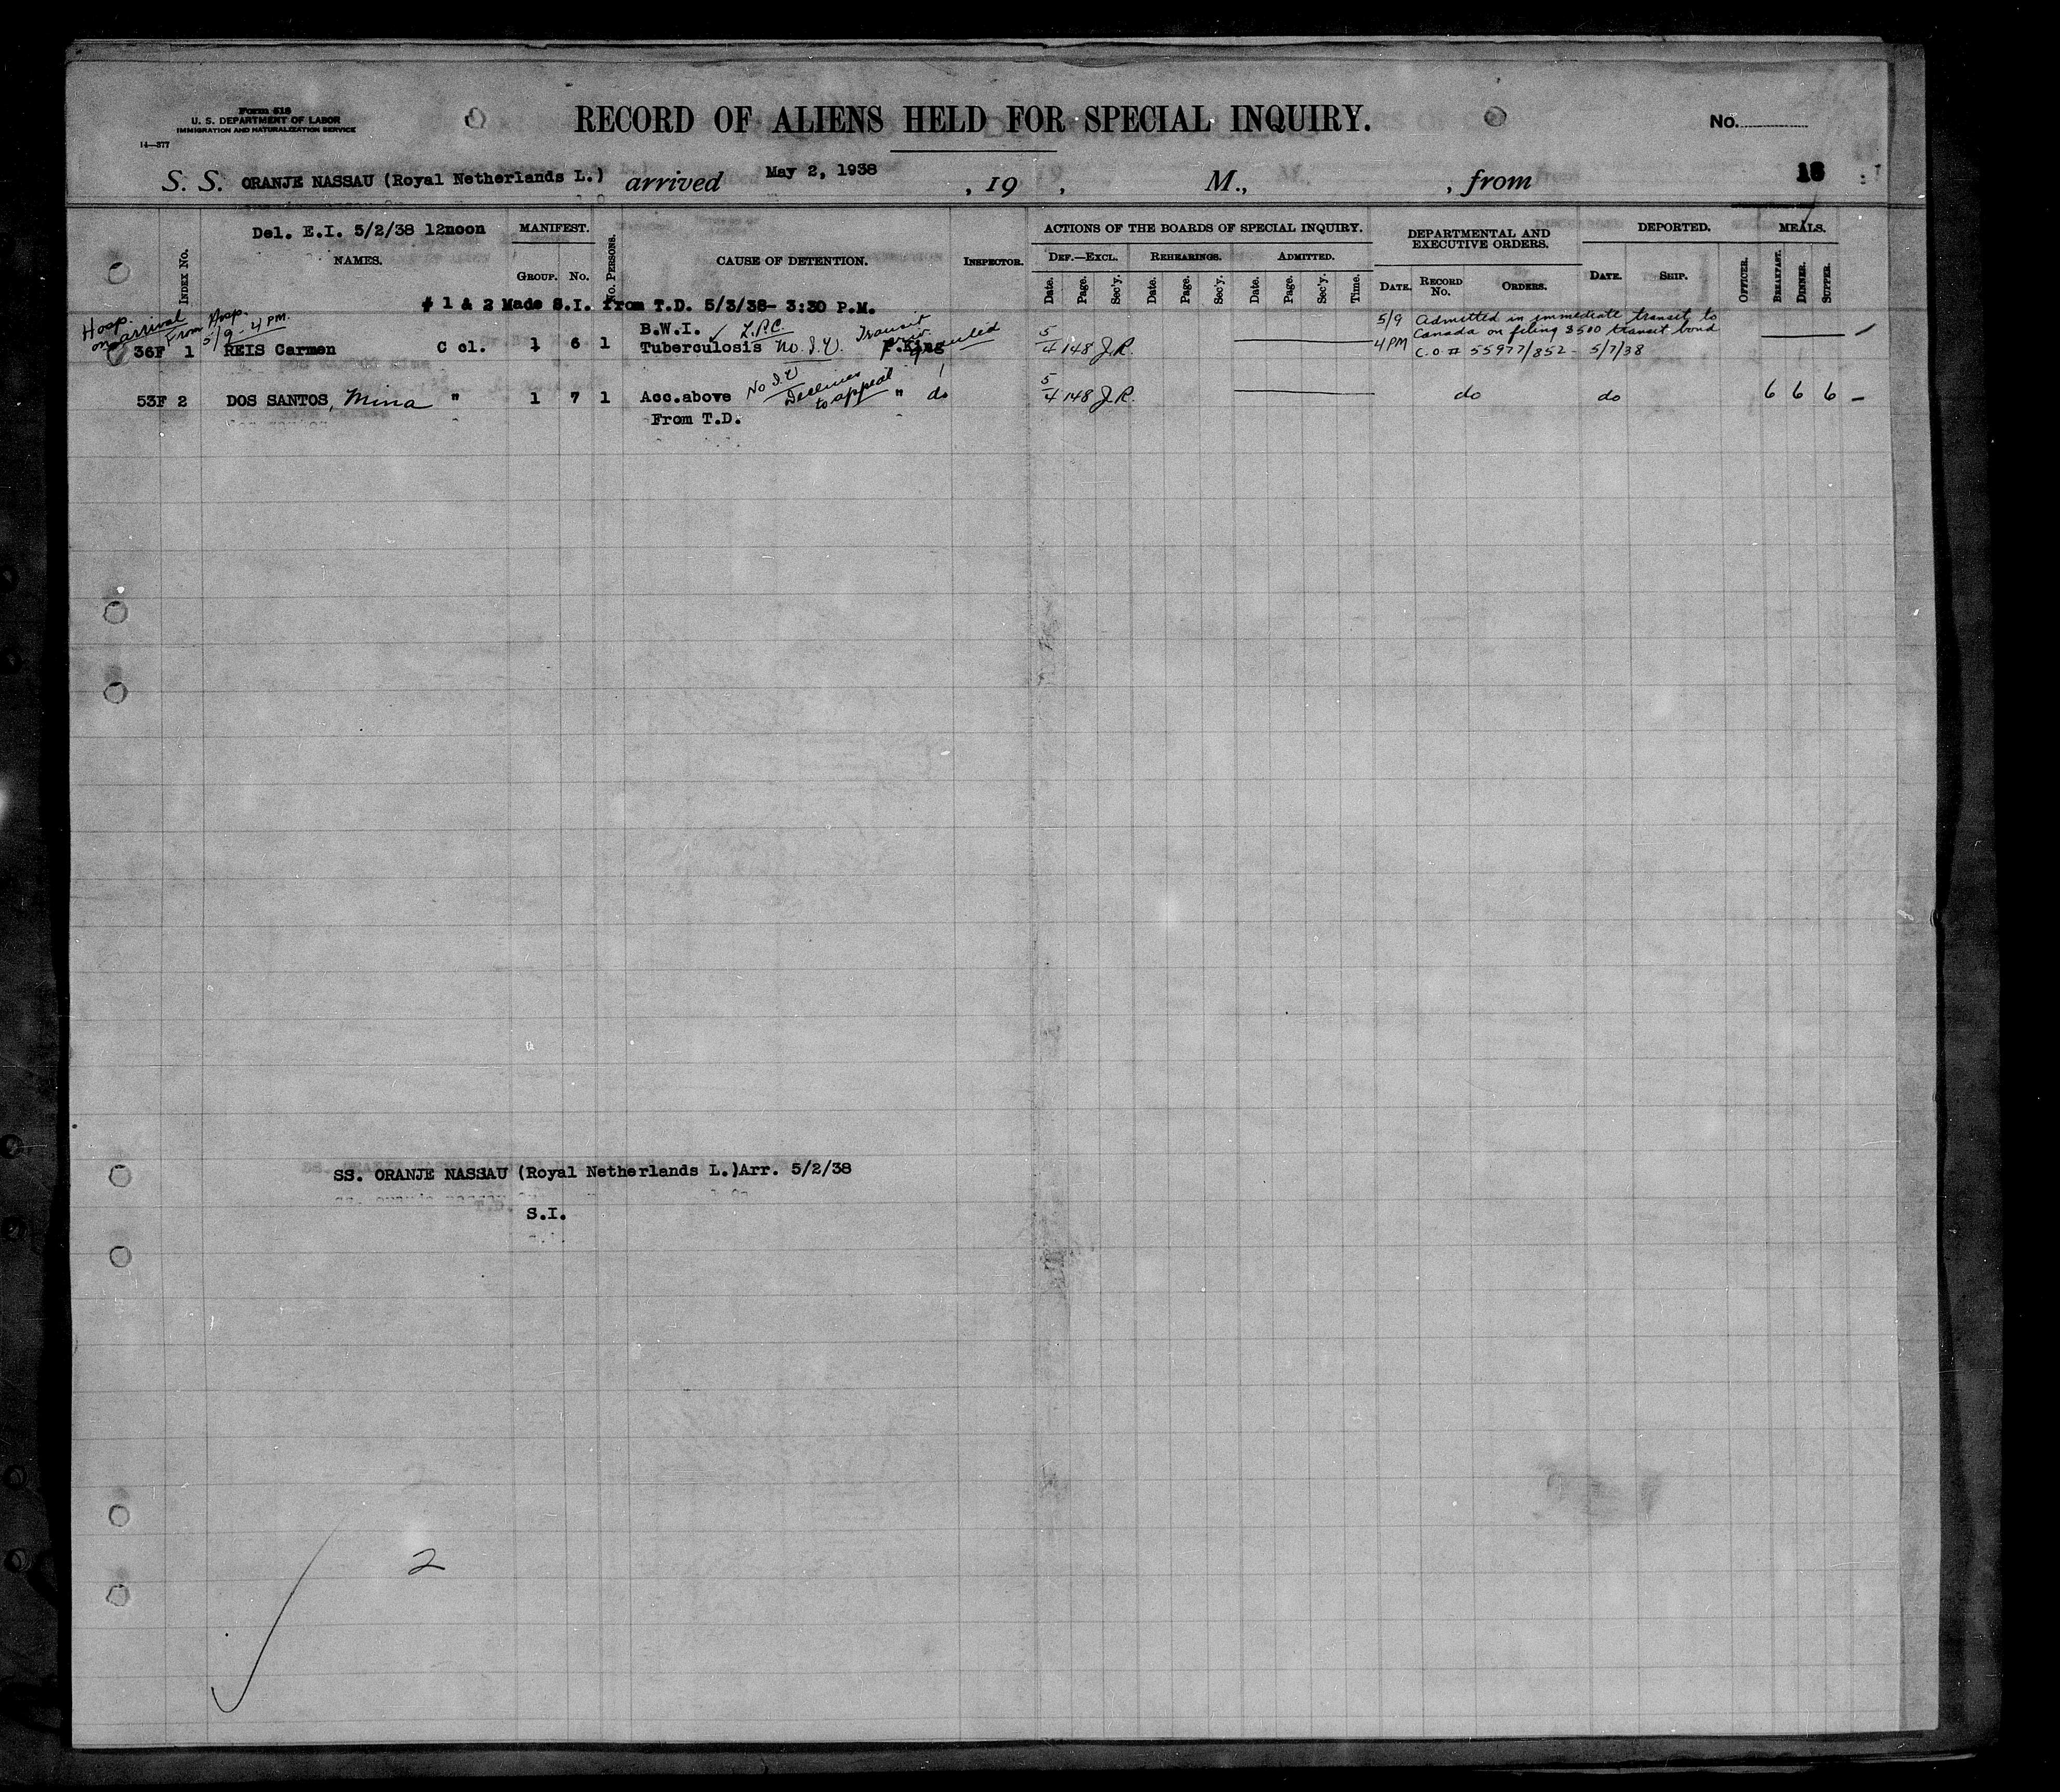 Form 518
U. S. DEPARTMENT OF LABOR
IMMIGRATION AND NATURALIZATION SERVICE
14—377
RECORD OF ALIENS HELD FOR SPECIAL INQUIRY.
No.
S. S. ORANJE NASSAU (Royal Netherlands L.) arrived May 2, 1938, 19 , M., , from
18
Del. E.I. 5/2/38 12noon
NAMES.
INDEX No.
MANIFEST.
GROUP. No.
No. PERSONS.
CAUSE OF DETENTION.
INSPECTOR.
ACTIONS OF THE BOARDS OF SPECIAL INQUIRY.
DEF.—EXCL. REHEARINGS. ADMITTED.
Date. Page. Sec'y. Date. Page. Sec'y. Date. Page. Sec'y. Time.
DEPARTMENTAL AND EXECUTIVE ORDERS.
DATE. RECORD No. ORDERS.
DEPORTED.
DATE. SHIP.
OFFICER.
MEALS.
BREAKFAST. DINNER. SUPPER.
# 1 & 2 Made S.I. from T.D. 5/3/38- 3:30 P.M.
Hosp. on arrival From Hosp. 5/9 - 4 PM.
36F 1 REIS Carmen C cl. 1 6 1 B.W.I. L.P.C. Tuberculosis No. I.V. Transit F.King 5/4 148 J.R.
5/9 4 PM Admitted in immediate transit to
Canada on filing $500 transit bond
C.O # 55977/852 - 5/7/38
53F 2 DOS SANTOS, Mina " 1 7 1 Acc.above No I.V Declines to appeal " do 5/4 148 J.R. do do 6 6 6
From T.D.
SS. ORANJE NASSAU (Royal Netherlands L.)Arr. 5/2/38
S.I.
2